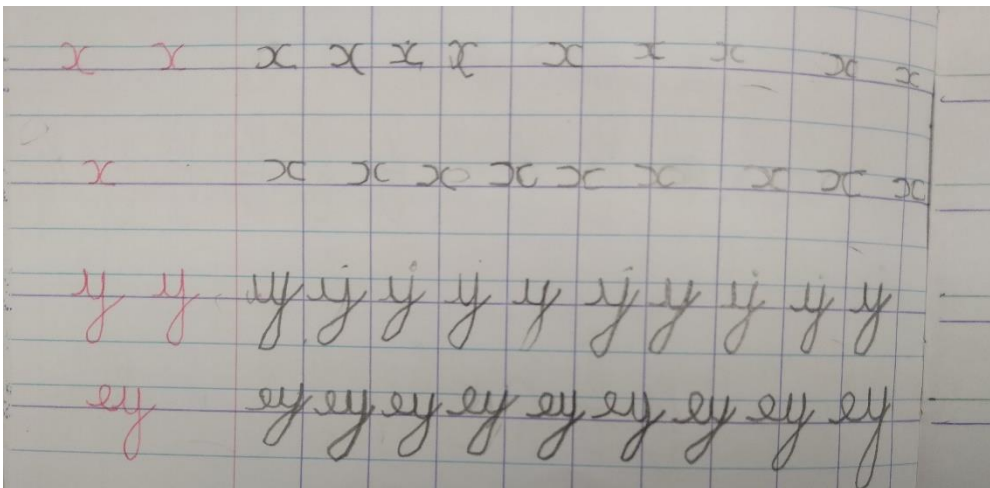 x x x x x x x x x x x
x x x x x x x x x x
y y y y y y y y y y y y
ey ey ey ey ey ey ey ey ey ey